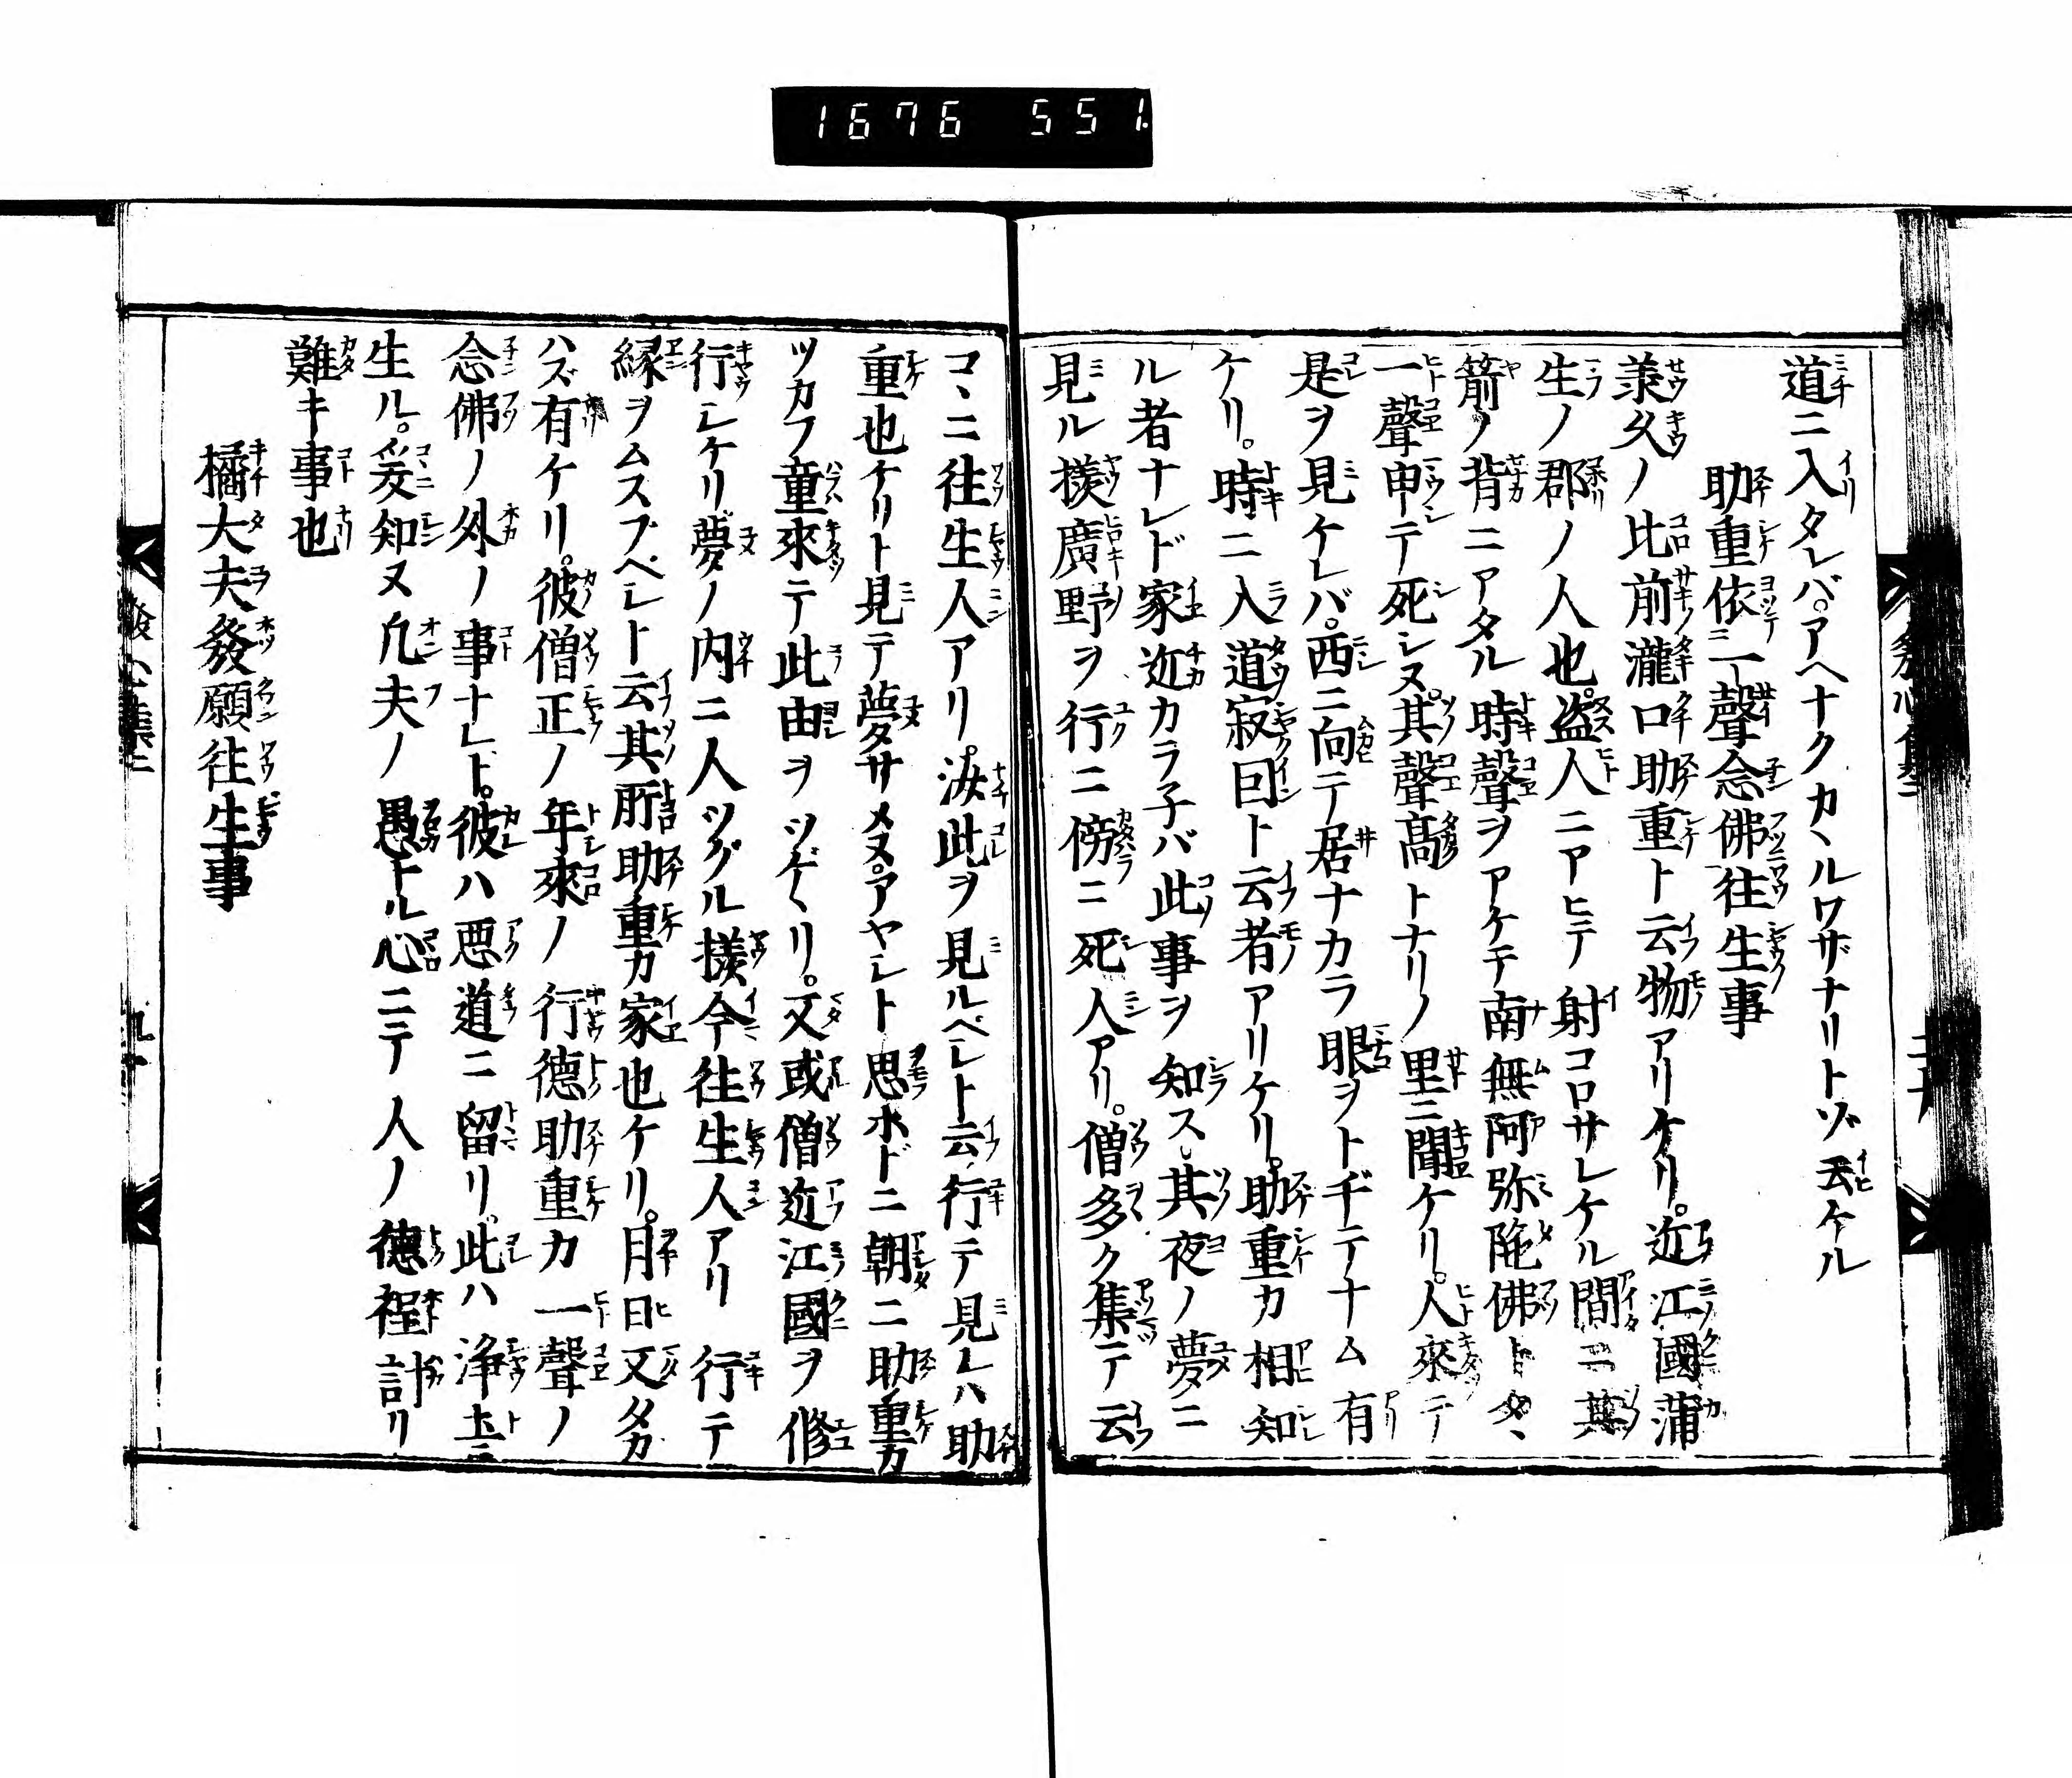 1676 551.
道ニ入タレバ。アヘナクカヽルワザナリトゾ云ケル
助重依一聲念佛往生事
羕久ノ比前瀧口助重ト云物アリケリ。近江國蒲
生ノ郡ノ人也。盗人ニアヒテ射コロサレケル間ニ其
箭ノ背ニアタル時聲ヲアケテ南無阿弥陁佛トタヽ
一聲申テ死シヌ。其聲高トナリノ里ニ聞ケリ。人來テ
是ヲ見ケレバ。西ニ向テ居ナカラ眼ヲトヂテナム有
ケリ。時ニ入道寂因ト云者アリケリ。助重カ相知
ル者ナレド家近カラ子バ此事ヲ知ス。其夜ノ夢ニ
見ル樣廣野ヲ行ニ傍ニ死人アリ。僧多ク集テ云
コヽニ往生人アリ。汝此ヲ見ルベシト云行テ見レハ助
重也ケリト見テ夢サメヌ。アヤシト思ホドニ朝ニ助重カ
ツカフ童來テ此由ヲツゲヽリ。又或僧近江國ヲ修
行シケリ夢ノ内ニ人ツグル樣今往生人アリ行テ
縁ヲムスブベシト云其所助重カ家也ケリ。月日又タカ
ハズ有ケリ。彼僧正ノ年來ノ行德助重カ一聲ノ
念佛ノ外ノ事ナレド。彼ハ悪道ニ留リ。此ハ浄土ニ
生ル。爰知ヌ凢夫ノ愚ナル心ニテ人ノ德程計リ
難キ事也
橘大夫發願往生事